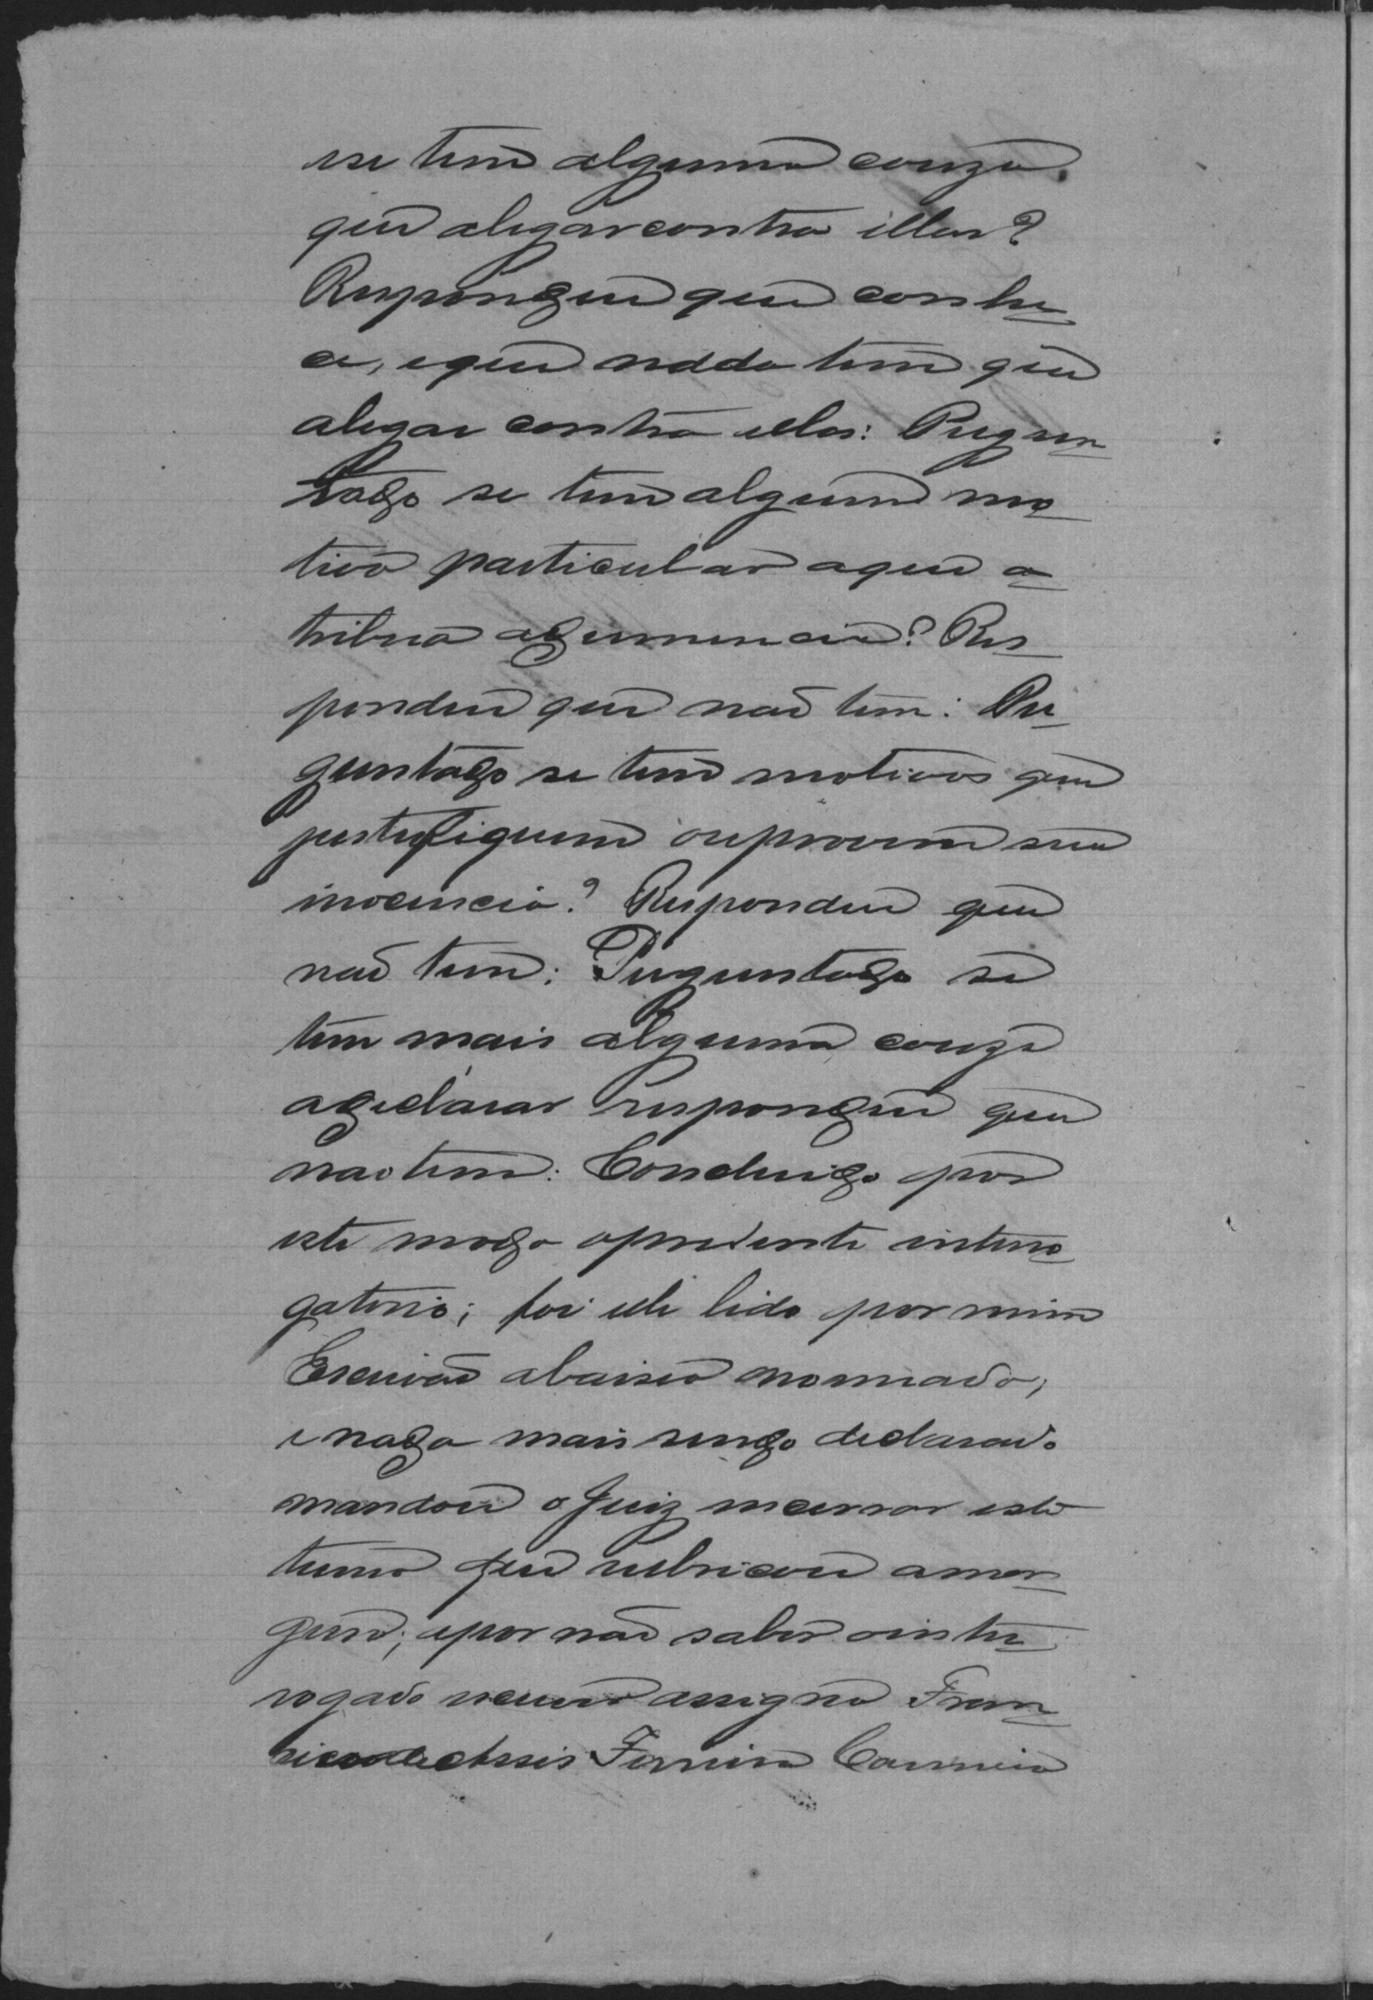 ese tem alguma couza
que alegar contra elles?
Respondeu que conhe-
ce, e que nada tem que
alegar contra elles: Pregun-
tado se tem algum mo-
tivo particular a que a-
tribua adenuncia? Res-
pondeu que não tem: Pre-
guntado se tem motivos que
justefiquem ou provem sua
inocencia? Respondeu que
não tem: Preguntado se
tem mais alguma couza
a declarar respondeu que
nao tem: Concluido por
este modo o presente interro-
gatorio; foi elle lido por mim
Escrivão abaixo nomeado,
e nada mais sendo declarado
mandou o Juiz encerrar este
termo que rubricou a mar-
gem; e por não saber o inter-
rogado escrever assigna Fran-
cisco de Assis Ferreira Carneiro